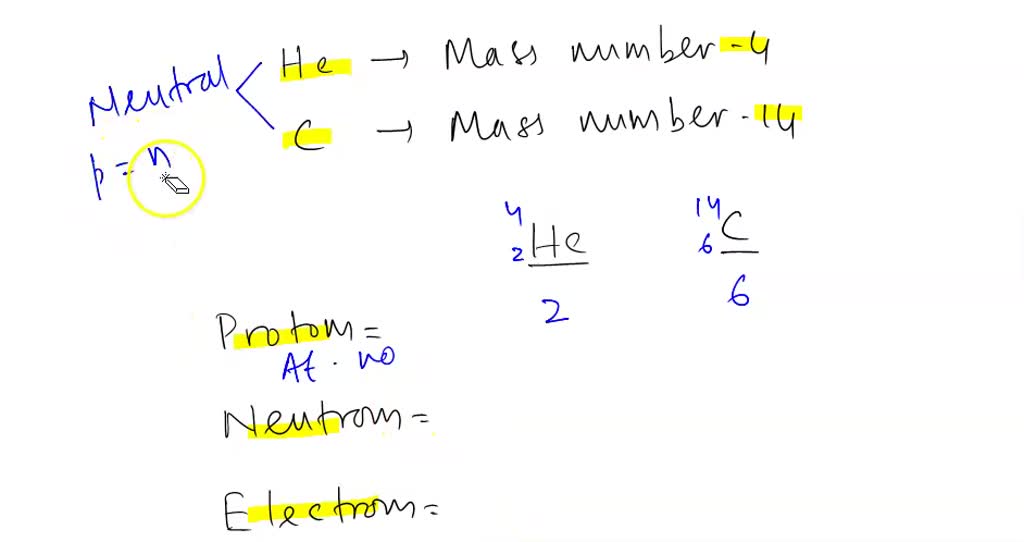 Neutral
He → Mass number - 4
C → Mass number - 14
p = n
4 2 He
14 6 C
2
6
Protom =
At . no
Neutrom =
Electrom =